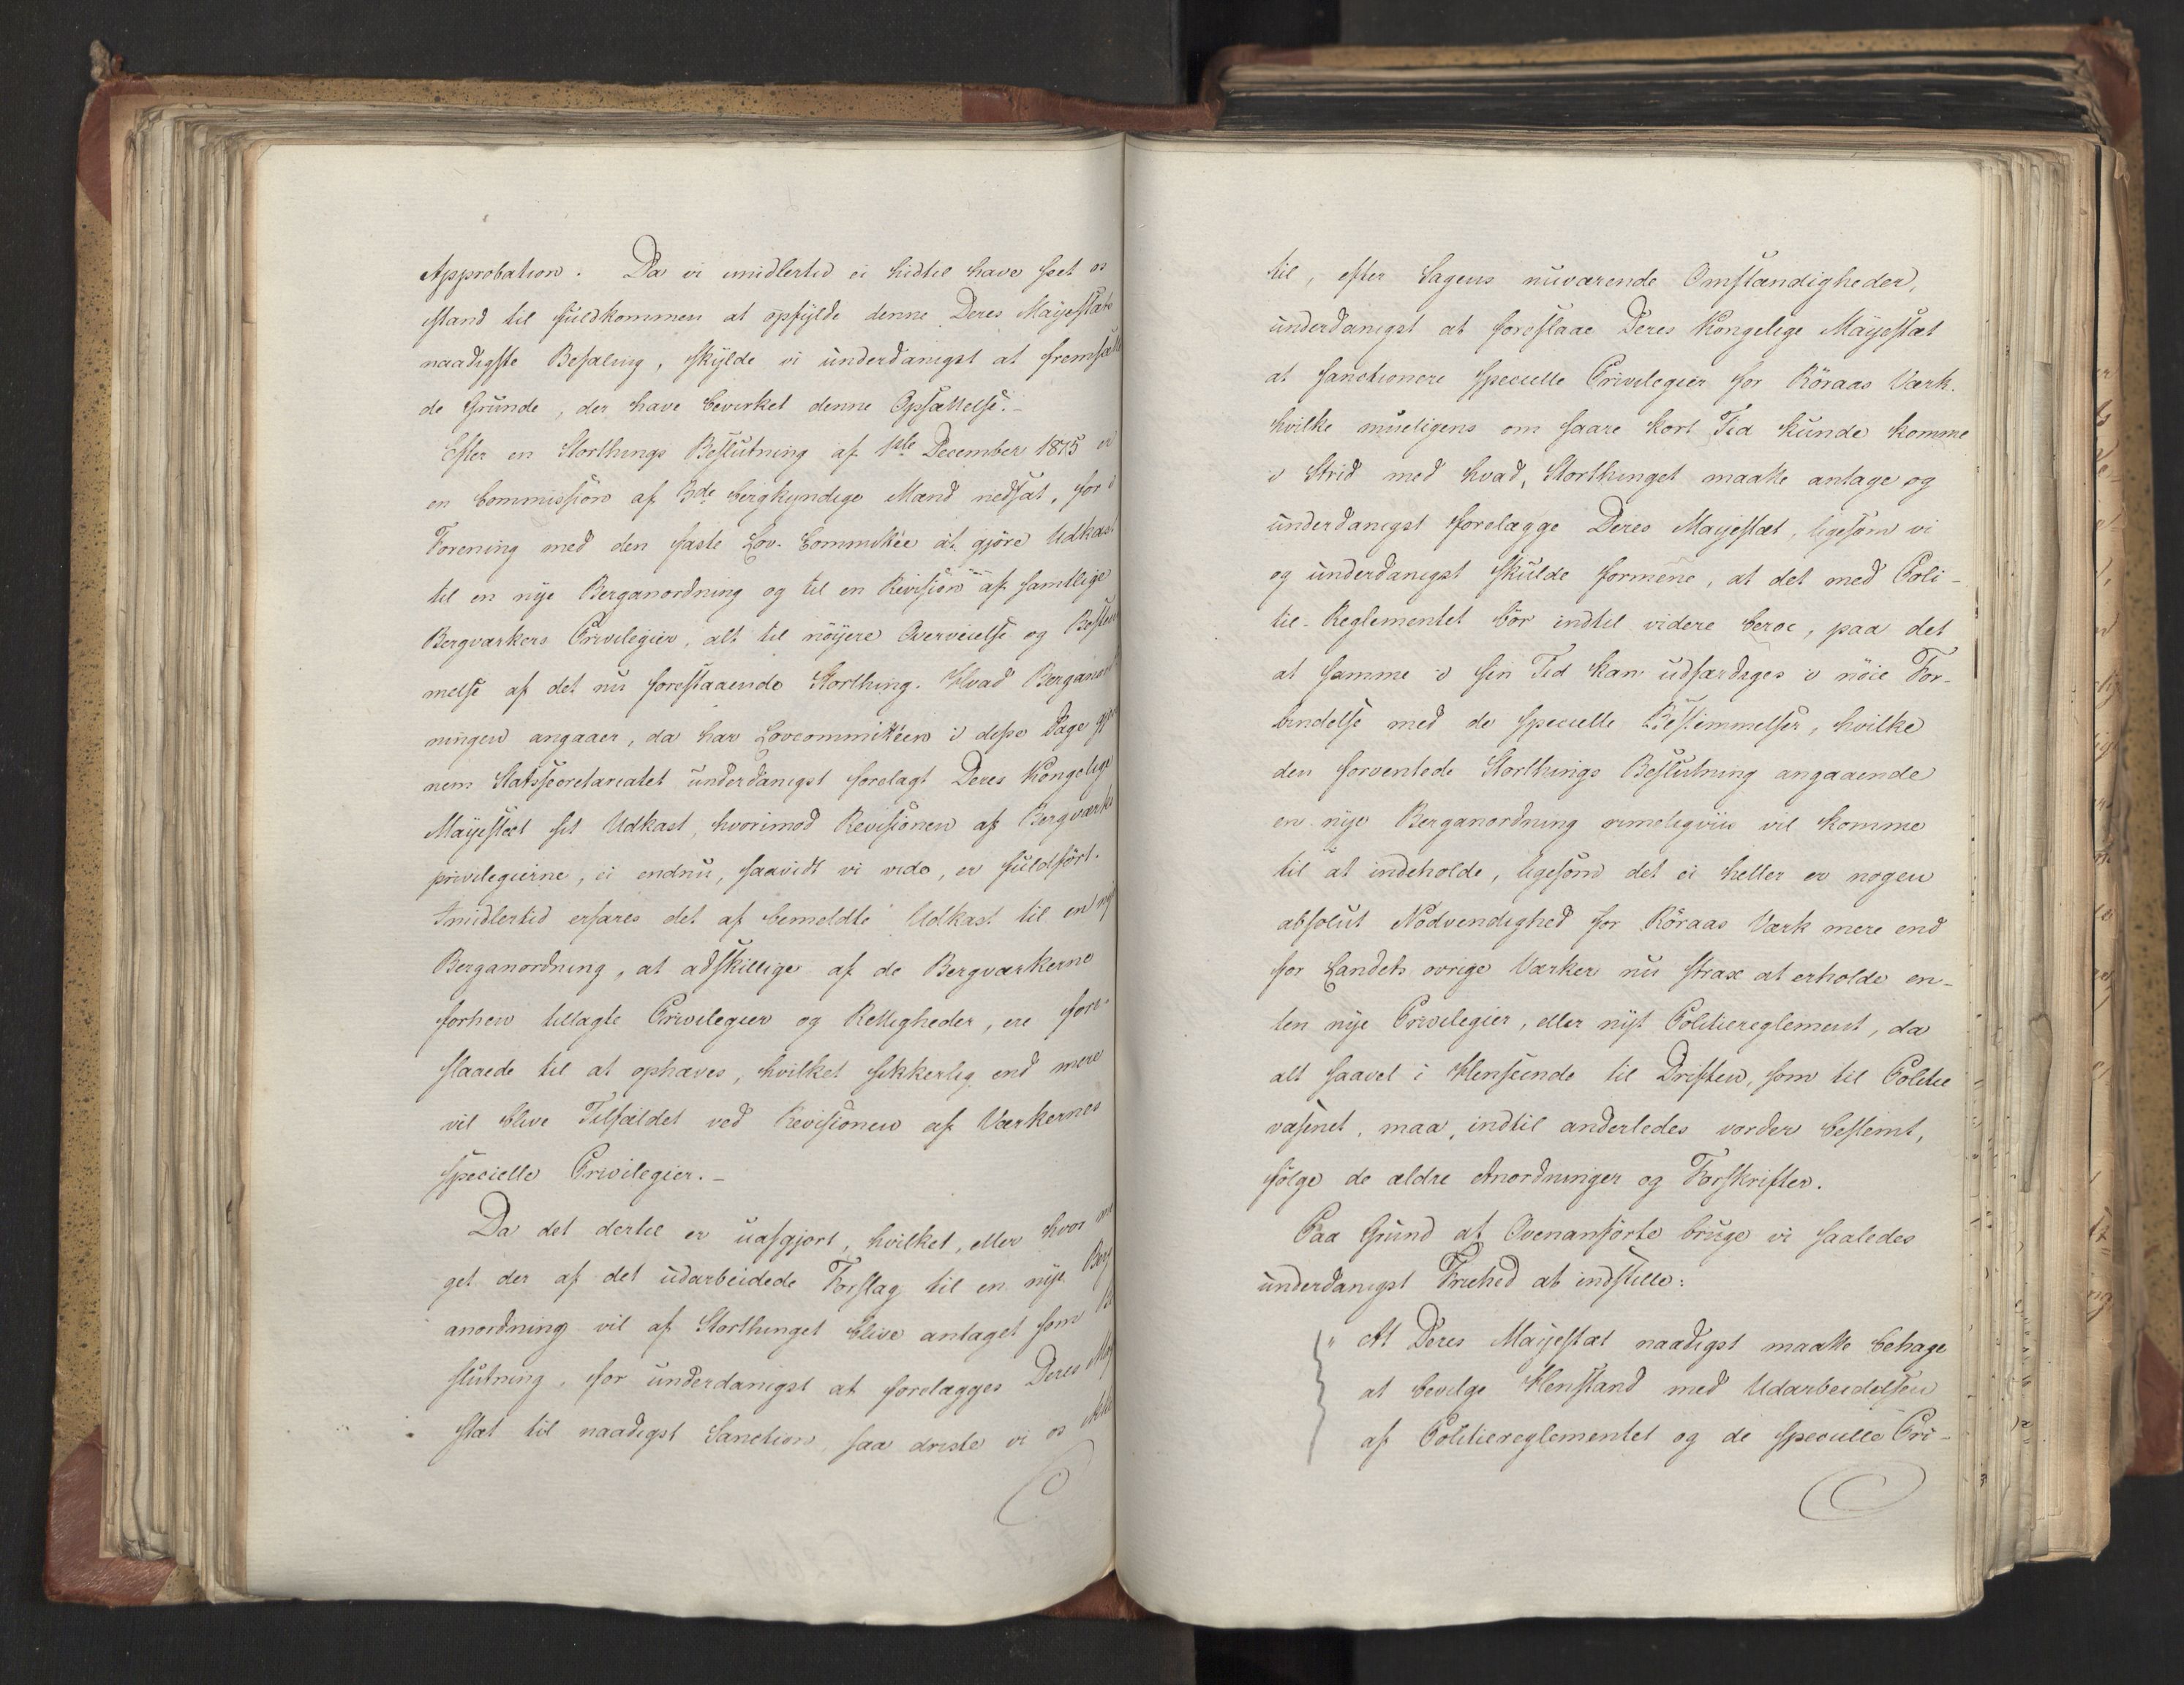 Approbation. Da vi imidlertid ei hidtil have seet os
istand til fuldkommen at opfylde denne Deres Majestæts
naadigste Befaling, skylde vi underdanigst at fremsætte
de Grunde, der have bevirket denne Opsættelse.-
Efter en Storthings Beslutning af 1ste December 1815 er
en Commission af 3de bergkyndige Mænd nedsat, for i
Forening med den faste Lov-Committée at gjöre Udkast
til en nye Berganordning og til en Revision af samtlige
Bergværkers Privilegier, alt til nöyere Overveielse og Bestem
melse af det nu forestaaende Storthing. Hvad Berganord
ningen angaaer, da har Lovcommittéen i disse Dage gjen
nem Statssecretariatet underdanigst forelagt Deres Kongelige
Majestæt sit Udkast, hvorimod Revisionen af Bergværks
privilegierne, ei endnu, saavidt vi vide, er fuldfört.
Imidlertid erfares det af bemeldte Udkast til en nye
Berganordning, at adskillige af de Bergværkerne
forhen tillagte Privilegier og Rettigheder, ere fore-
slaaede til at ophæves, hvilket sikkerlig end mere
vil blive Tilfældet ved Revisionen af Værkernes
specielle Privilegier.-
Da det dertil er uafgjort, hvilket, eller hvor me
get der af det udarbeidede Forslag til en nye Berg
anordning vil af Storthinget blive antaget som Be
slutning, for underdanigst at forelægges Deres Maj
stæt til naadigst Sanction, saa driste vi os ikke
til, efter Sagens nuværende Omstændigheder,
underdanigst at foreslaae Deres Kongelige Majestæt
at sanctionere specielle Privilegier for Röraas Værk.
hvilke mueligens om saare kort Tid kunde komme
i Strid med hvad, Storthinget maatte antage og
underdanigst forelægge Deres Majestæt, ligesom vi
og underdanigst skulde formene, at det med Poli-
tie-Reglementet bör indtil videre beroe, paa det
at samme i sin Tid kan udfærdiges i nöie For-
bindelse med de specielle Bestemmelser, hvilke
den forventede Storthings Beslutning angaaende
en nye Berganordning rimeligviis vil komme
til at indeholde, ligesom det ei heller er nogen
absolut Nödvendighed for Röraas Værk mere end
for Landets övrige Værker nu strax at erholde en-
ten nye Privilegier, eller nyt Politiereglement, da
alt saavel i Henseende til Driften, som til Politie
væsenet, maa, indtil anderledes vorder bestemt,
fölge de ældre Anordninger og Forskrifter.
Paa Grund af Ovenanförte bruge vi saaledes
underdanigst Friehed at indstille:
" At Deres Majestæt naadigst maatte behage
at bevilge Henstand med Udarbeidelsen
af Politiereglementet og de specielle Pri-